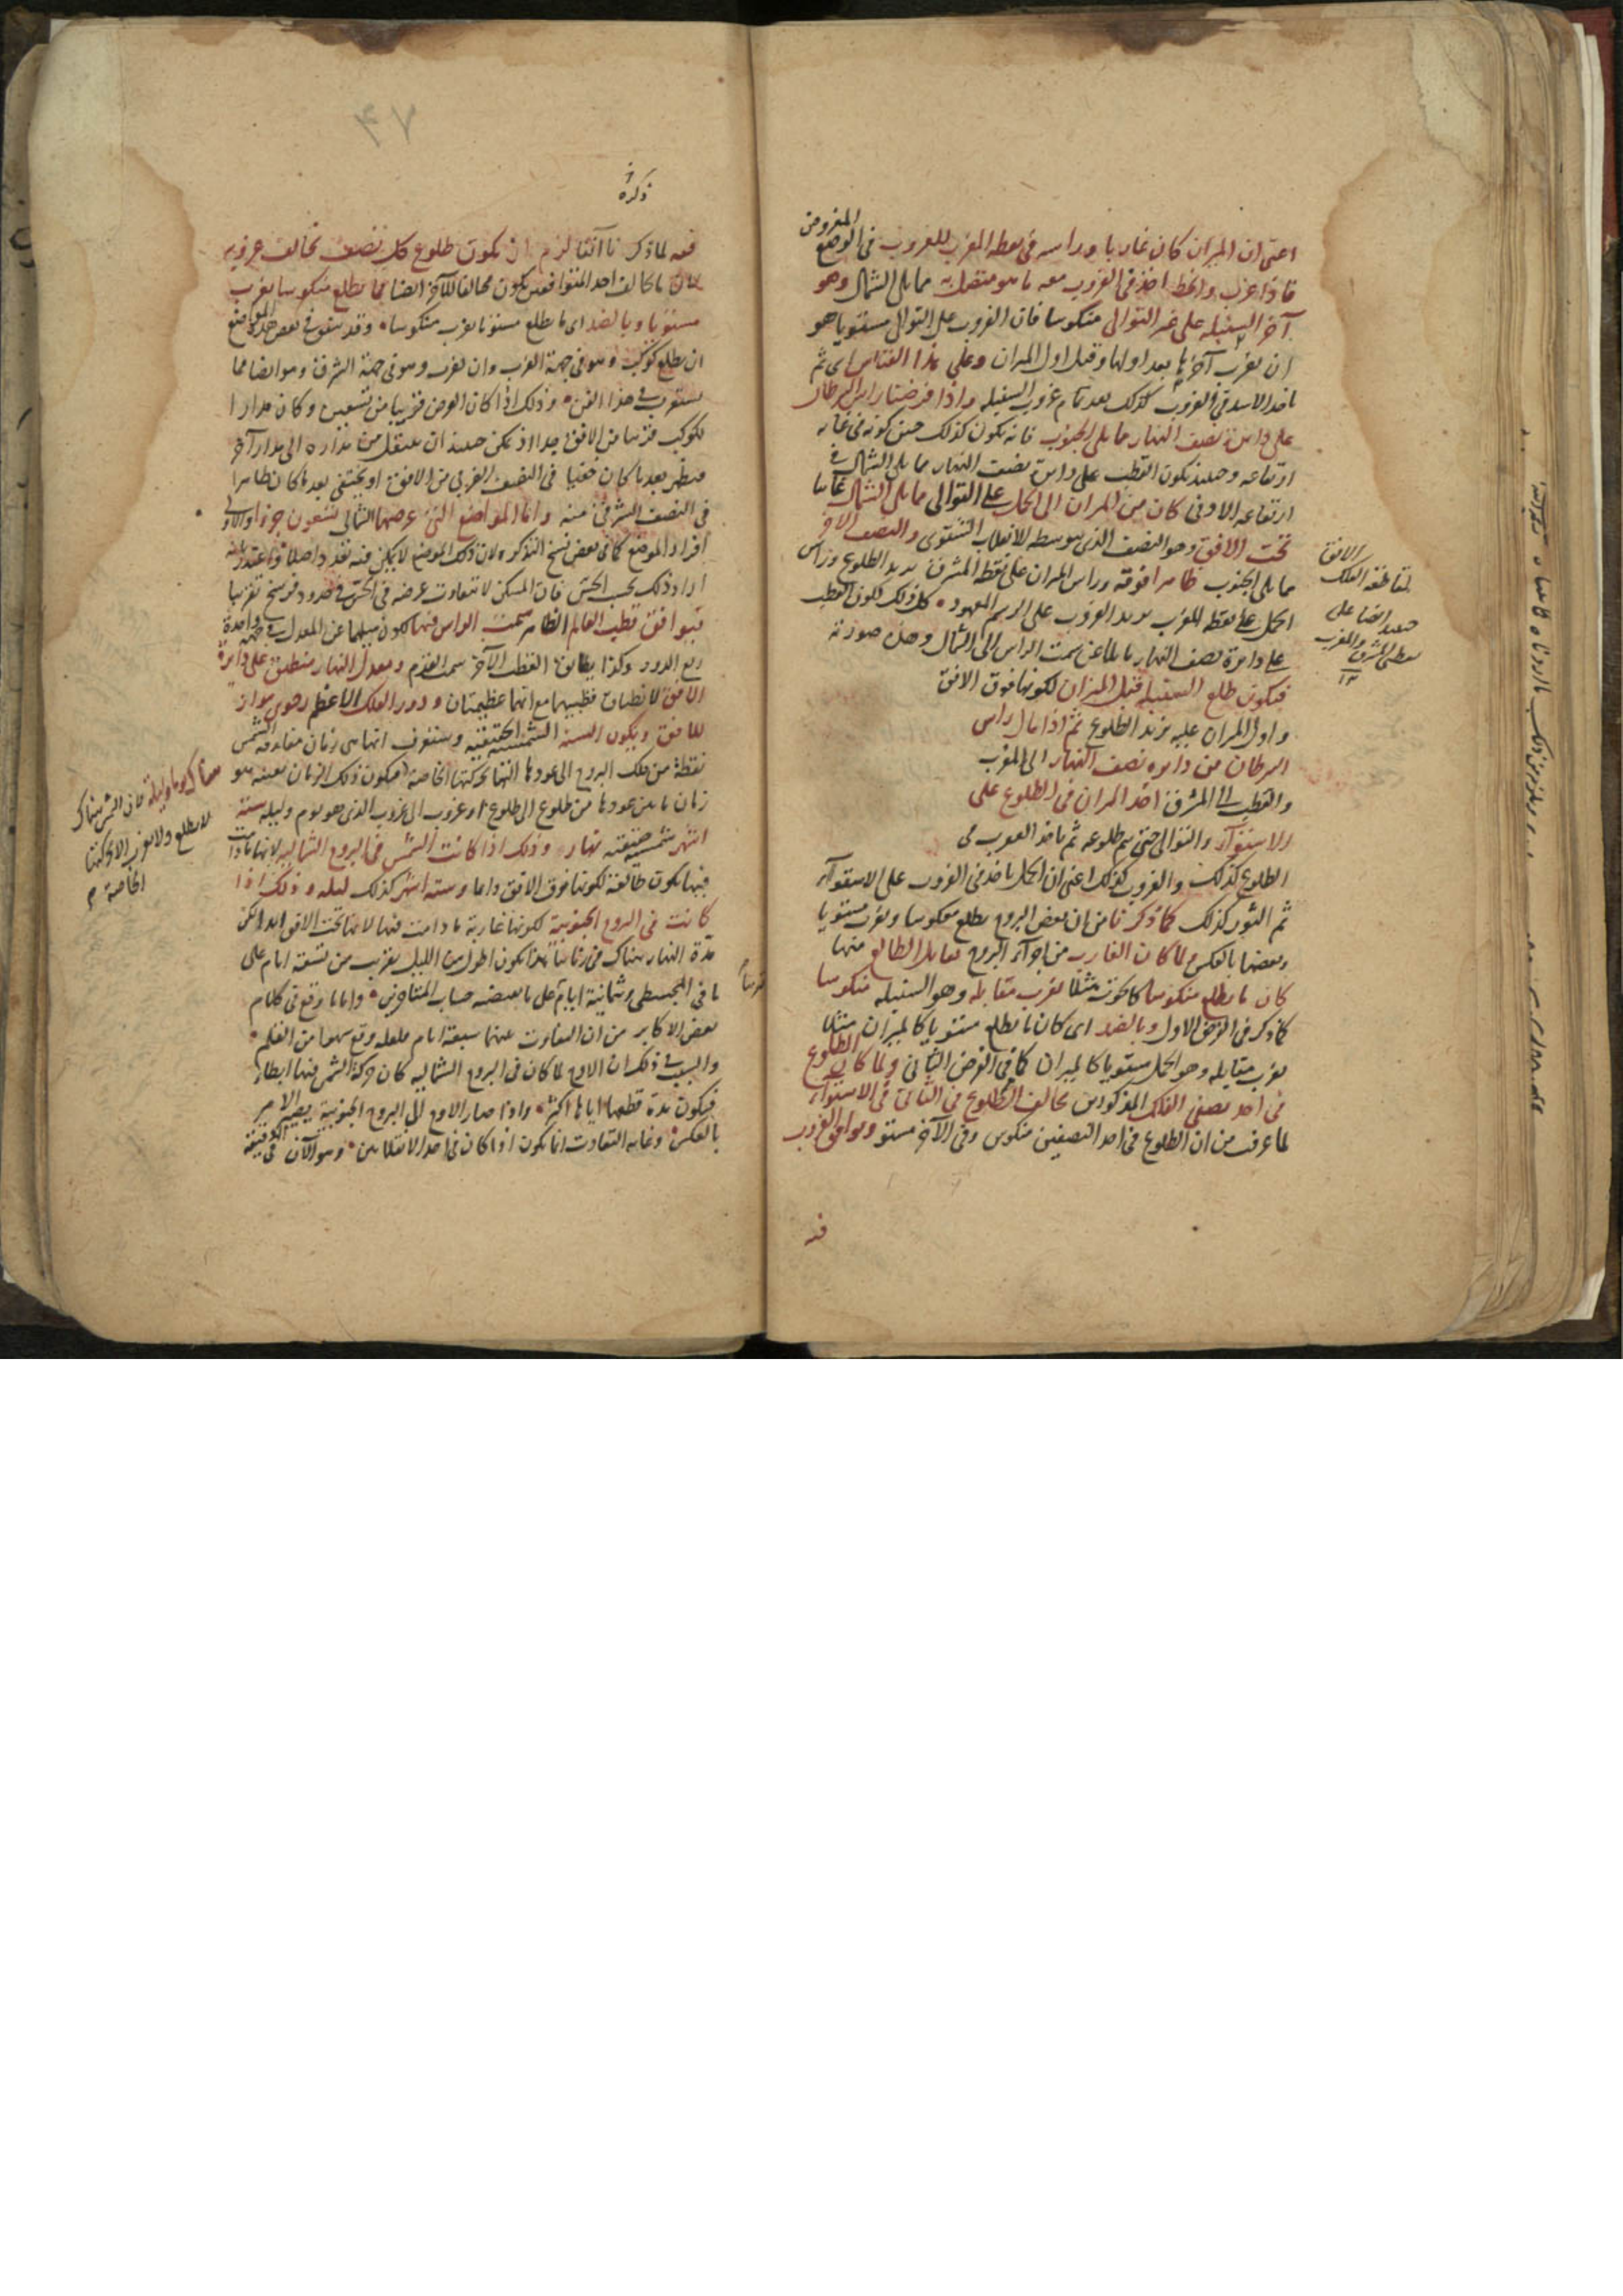 المفروض
اعنى ان الميزان كان غاربا وراسه فى نقطة المغرب للغروب فى الوضع
فاذا غرب وانحط اخذ فى الغروب معه ما هو متصل به مما يلى الشمال وهو
آخر السنبلة على غير التوالى منكوسا فان الغروب على التوالى مستويا هو
ان يغرب آخرها بعد اولها وقبل اول الميزان وعلى هذا القياس اى ثم
ياخذ الاسد فى الغروب كذلك بعد تمام غروب السنبلة واذا فرضنا راس السرطان
على دائرة نصف النهار مما يلى الجنوب فانه يكون كذلك حين كونه فى غاية
ارتفاعه وحينئذ يكون القطب على دائرة نصف النهار مما يلى الشمال فى
ارتفاعه الادنى كان من الميزان الى الحمل على التوالى مما يلى الشمال غائبا
تحت الافق وهو النصف الذى يتوسطه الانقلاب الشتوى والنصف الآخر
مما يلى الجنوب ظاهرا فوقه وراس الميزان على نقطة المشرق يريد الطلوع وراس
الحمل على نقطة المغرب يريد الغروب على الرسم المعهود كل ذلك لكون القطب
على دائرة نصف النهار مائلا عن سمت الراس الى الشمال وهذه صورته
فيكون طلع السنبلة قبل الميزان لكونها فوق الافق
واول الميزان عليه يريد الطلوع ثم اذا مال راس
السرطان من دائرة نصف النهار الى المغرب
والقطب الى المشرق اخذ الميزان فى الطلوع على
الاستواء والتوالى حتى يتم طلوعه ثم ياخذ العقرب فى
الطلوع كذلك والغروب كذلك اعنى ان الحمل ياخذ فى الغروب على الاستواء
ثم الثور كذلك كما ذكرنا من ان بعض البروج يطلع معكوسا ويغرب مستويا
وبعضها بالعكس لما كان الغارب من اجزاء البروج يقابل الطالع منها
كان ما يطلع منكوسا كالحوت مثلا يغرب مقابله وهو السنبلة منكوسا
كما ذكر فى الفرض الاول وبالضد اى كان ما يطلع مستويا كالميزان مثلا
يغرب مقابله وهو الحمل مستويا كالميزان كما فى الفرض الثانى ولما كان الطلوع
فى احد نصفى الفلك المذكورين يخالف الطلوع فى الثانى فى الاستواء
لما عرفت من ان الطلوع فى احد النصفين منكوس وفى الآخر مستو ويوافق الغروب
فيه
الافق
لتقاطعه الفلك
حينئذ ايضا على
نقطتى المشرق والمغرب
١٢
٤٧
ذكره
فيه لما ذكرنا آنفا لزم ان يكون طلوع كل نصف يخالف غروبه
فان ما يخالف احد المتوافقين يكون مخالفا للآخر ايضا فما يطلع منكوسا يغرب
مستويا وبالضد اى ما يطلع مستويا يغرب منكوسا وقد يتفق فى بعض هذه المواضع
ان يطلع كوكب وهو فى جهة الغرب وان يغرب وهو فى جهة الشرق وهو ايضا مما
يستغرب فى هذا الفن وذلك اذا كان العرض قريبا من تسعين وكان مدار
الكوكب قريبا من الافق جدا اذ يمكن حينئذ ان ينتقل من مداره الى مدار آخر
فيظهر بعد ما كان خفيا فى النصف الغربى من الافق او يختفى بعد ما كان ظاهرا
فى النصف الشرقى منه واما المواضع التى عرضها الشمالى تسعون جزءا والاولى
افراد الموضع كما فى بعض نسخ التذكرة لان ذلك الموضع لا يمكن فيه تعدد اصلا واعتذر بانه
اراد ذلك بحسب الحس فان المسكن لا يتفاوت عرضه فى الحس فى حدود فرسخ تقريبا
فيوافق قطب العالم الظاهر سمت الراس فيها لكون ميلهما عن المعدل فى جهة واحدة
ربع الدور وكذا يطابق القطب الآخر سمت القدم ومعدل النهار منطبق على دائرة
الافق لانطباق قطبيهما مع انهما عظيمتان ودور الفلك الاعظم رحوى موازٍ
للافق ويكون السنة الشمسية الحقيقية وستعرف انها هى زمان مفارقة الشمس
نقطة من فلك البروج الى عودها اليها بحركتها الخاصة فيكون ذلك الزمان بعينه هو
زمان ما بين عودها من طلوع الى طلوع او غروب الى غروب الذى هو يوم وليلة ستة
اشهر شمسية حقيقية نهار وذلك اذا كانت الشمس فى البروج الشمالية لانها ما دامت
فيها يكون طالعة لكونها فوق الافق دائما وستة اشهر كذلك ليلة وذلك اذا
كانت فى البروج الجنوبية لكونها غاربة ما دامت فيها لانها تحت الافق ابدا لكن
مدة النهار هناك فى زماننا هذا يكون اطول من الليل بقريب من تسعة ايام على
ما فى المجسطى وثمانية ايام على ما يعطيه حساب المتاخرين واما ما وقع فى كلام
بعض الاكابر من ان التفاوت بينهما سبعة ايام فلعله وقع سهوا من القلم
والسبب فى ذلك ان الاوج لما كان فى البروج الشمالية كان حركة الشمس فيها ابطأ
فيكون مدة قطعها اياها اكثر واذا صار الاوج الى البروج الجنوبية يصير الامر
بالعكس وغاية التفاوت انما يكون اذا كان فى احد الانقلابين وهو الآن فى
هناك يوما وليلة فان الشمس هناك
لا يطلع ولا يغرب الا بحركتها
الخاصة م